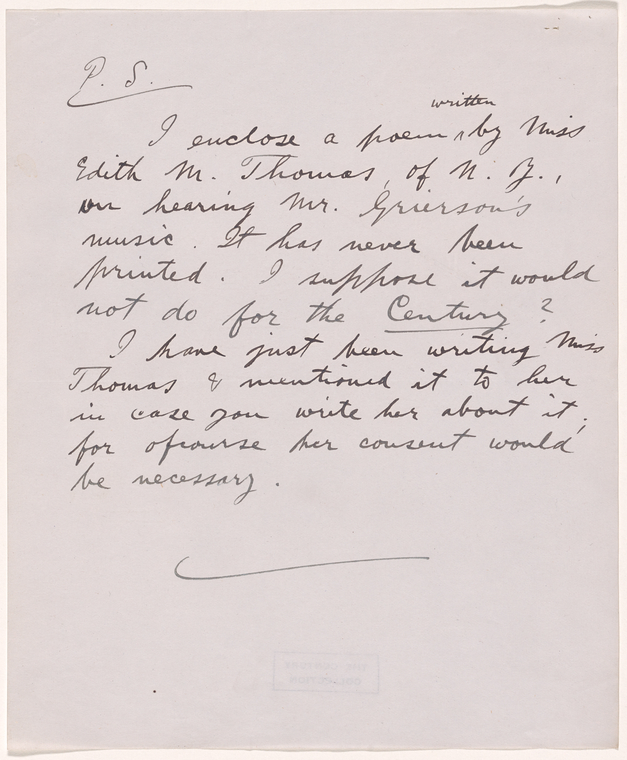 P. S.
I enclose a poem ^written by Miss
Edith M. Thomas, of N. Y.,
on hearing Mr. Grierson's
music. It has never been
printed. I suppose it would
not do for the Century?
I have just been writing Miss
Thomas & mentioned it to her
in case you write her about it;
for ofcourse her consent would
be necessary.